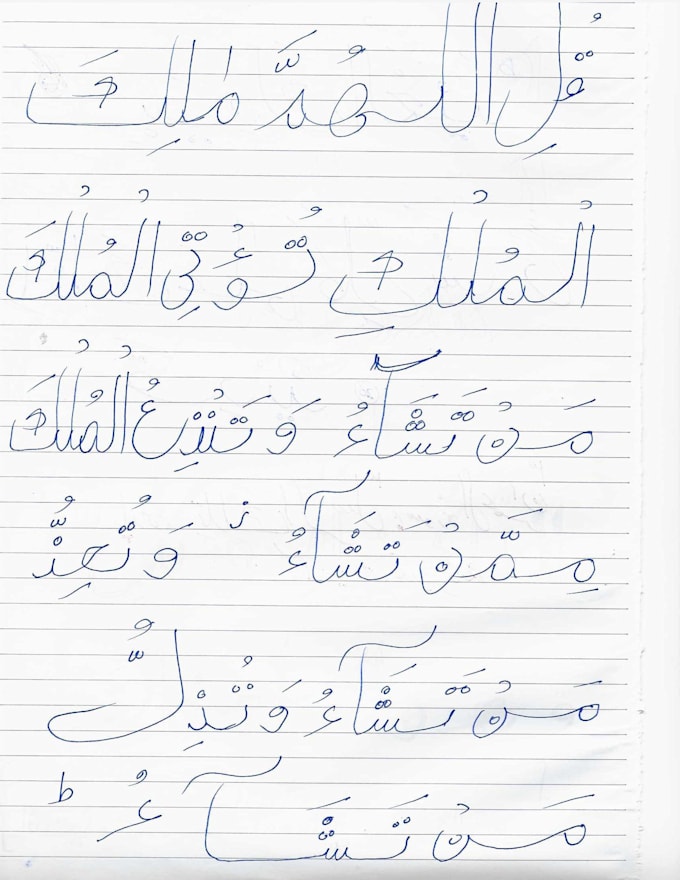 قُلِ اللّٰهُمَّ مٰلِكَ
الْمُلْكِ تُؤْتِي الْمُلْكَ
مَنْ تَشَآءُ وَتَنْزِعُ الْمُلْكَ
مِمَّنْ تَشَآءُ ز وَتُعِزُّ
مَنْ تَشَآءُ وَتُذِلُّ
مَنْ تَشَآءُ ط